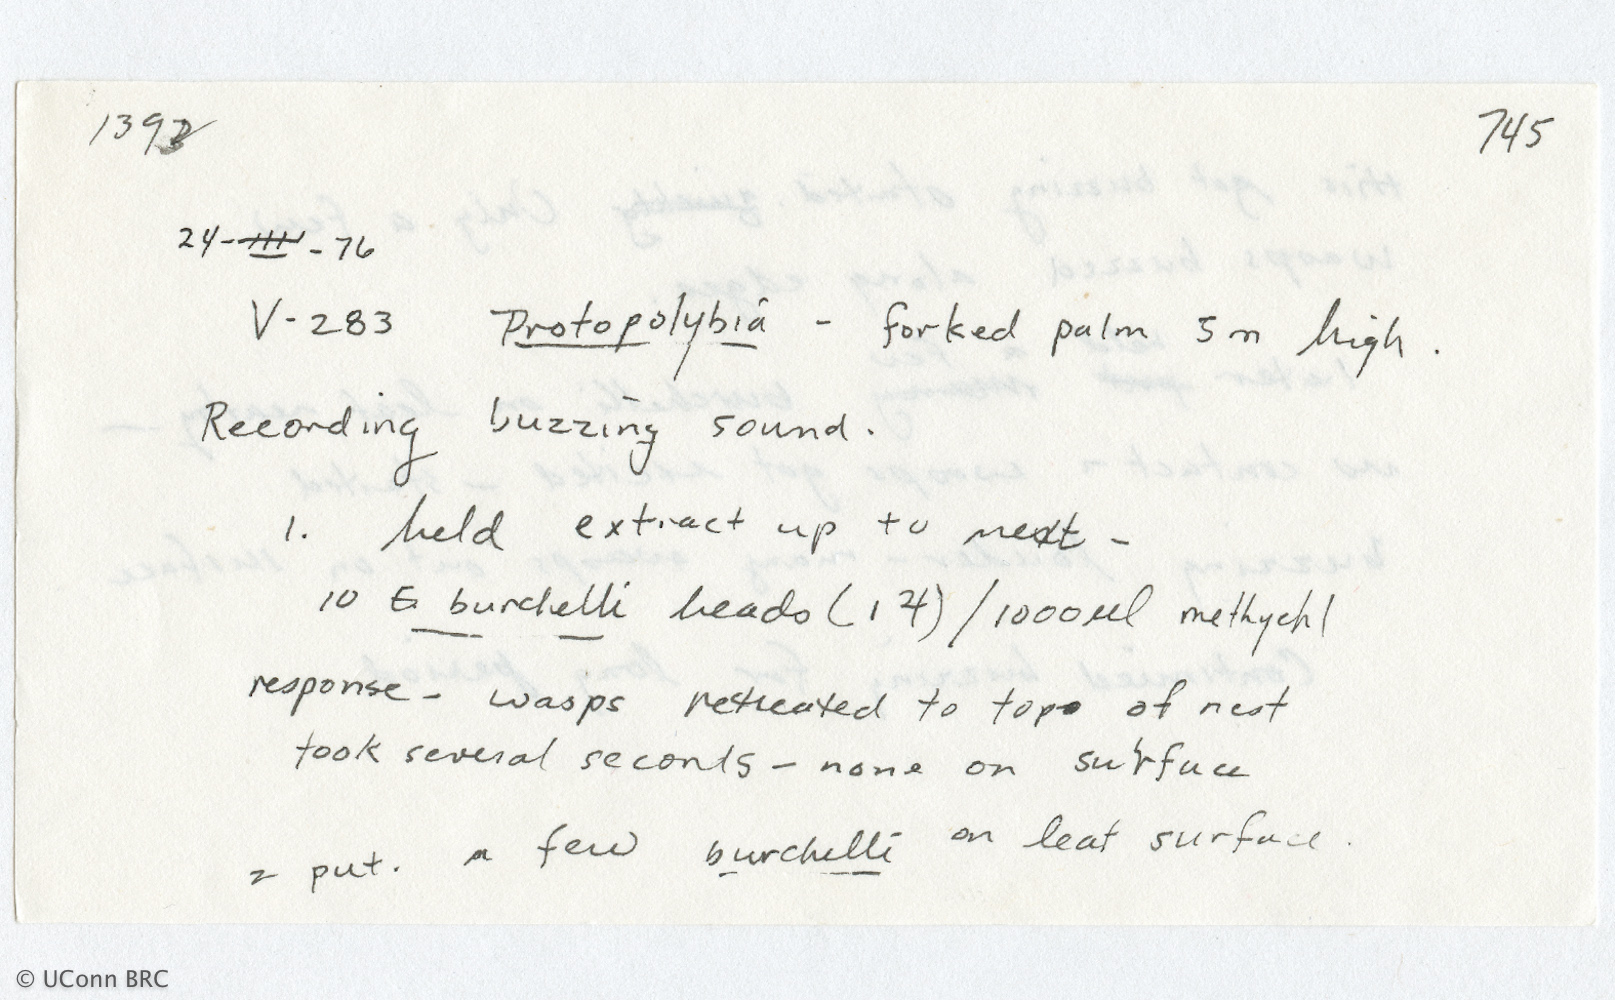 1392
745
24-III-76
V-283 Protopolybia - forked palm 5m high.
Recording buzzing sound.
1. held extract up to nest -
10 E burchelli heads (1 7)/1000ul methychl
response - wasps retreated to top of nest
took several seconds - none on surface
2 put. a few burchelli on leaf surface.
© UConn BRC